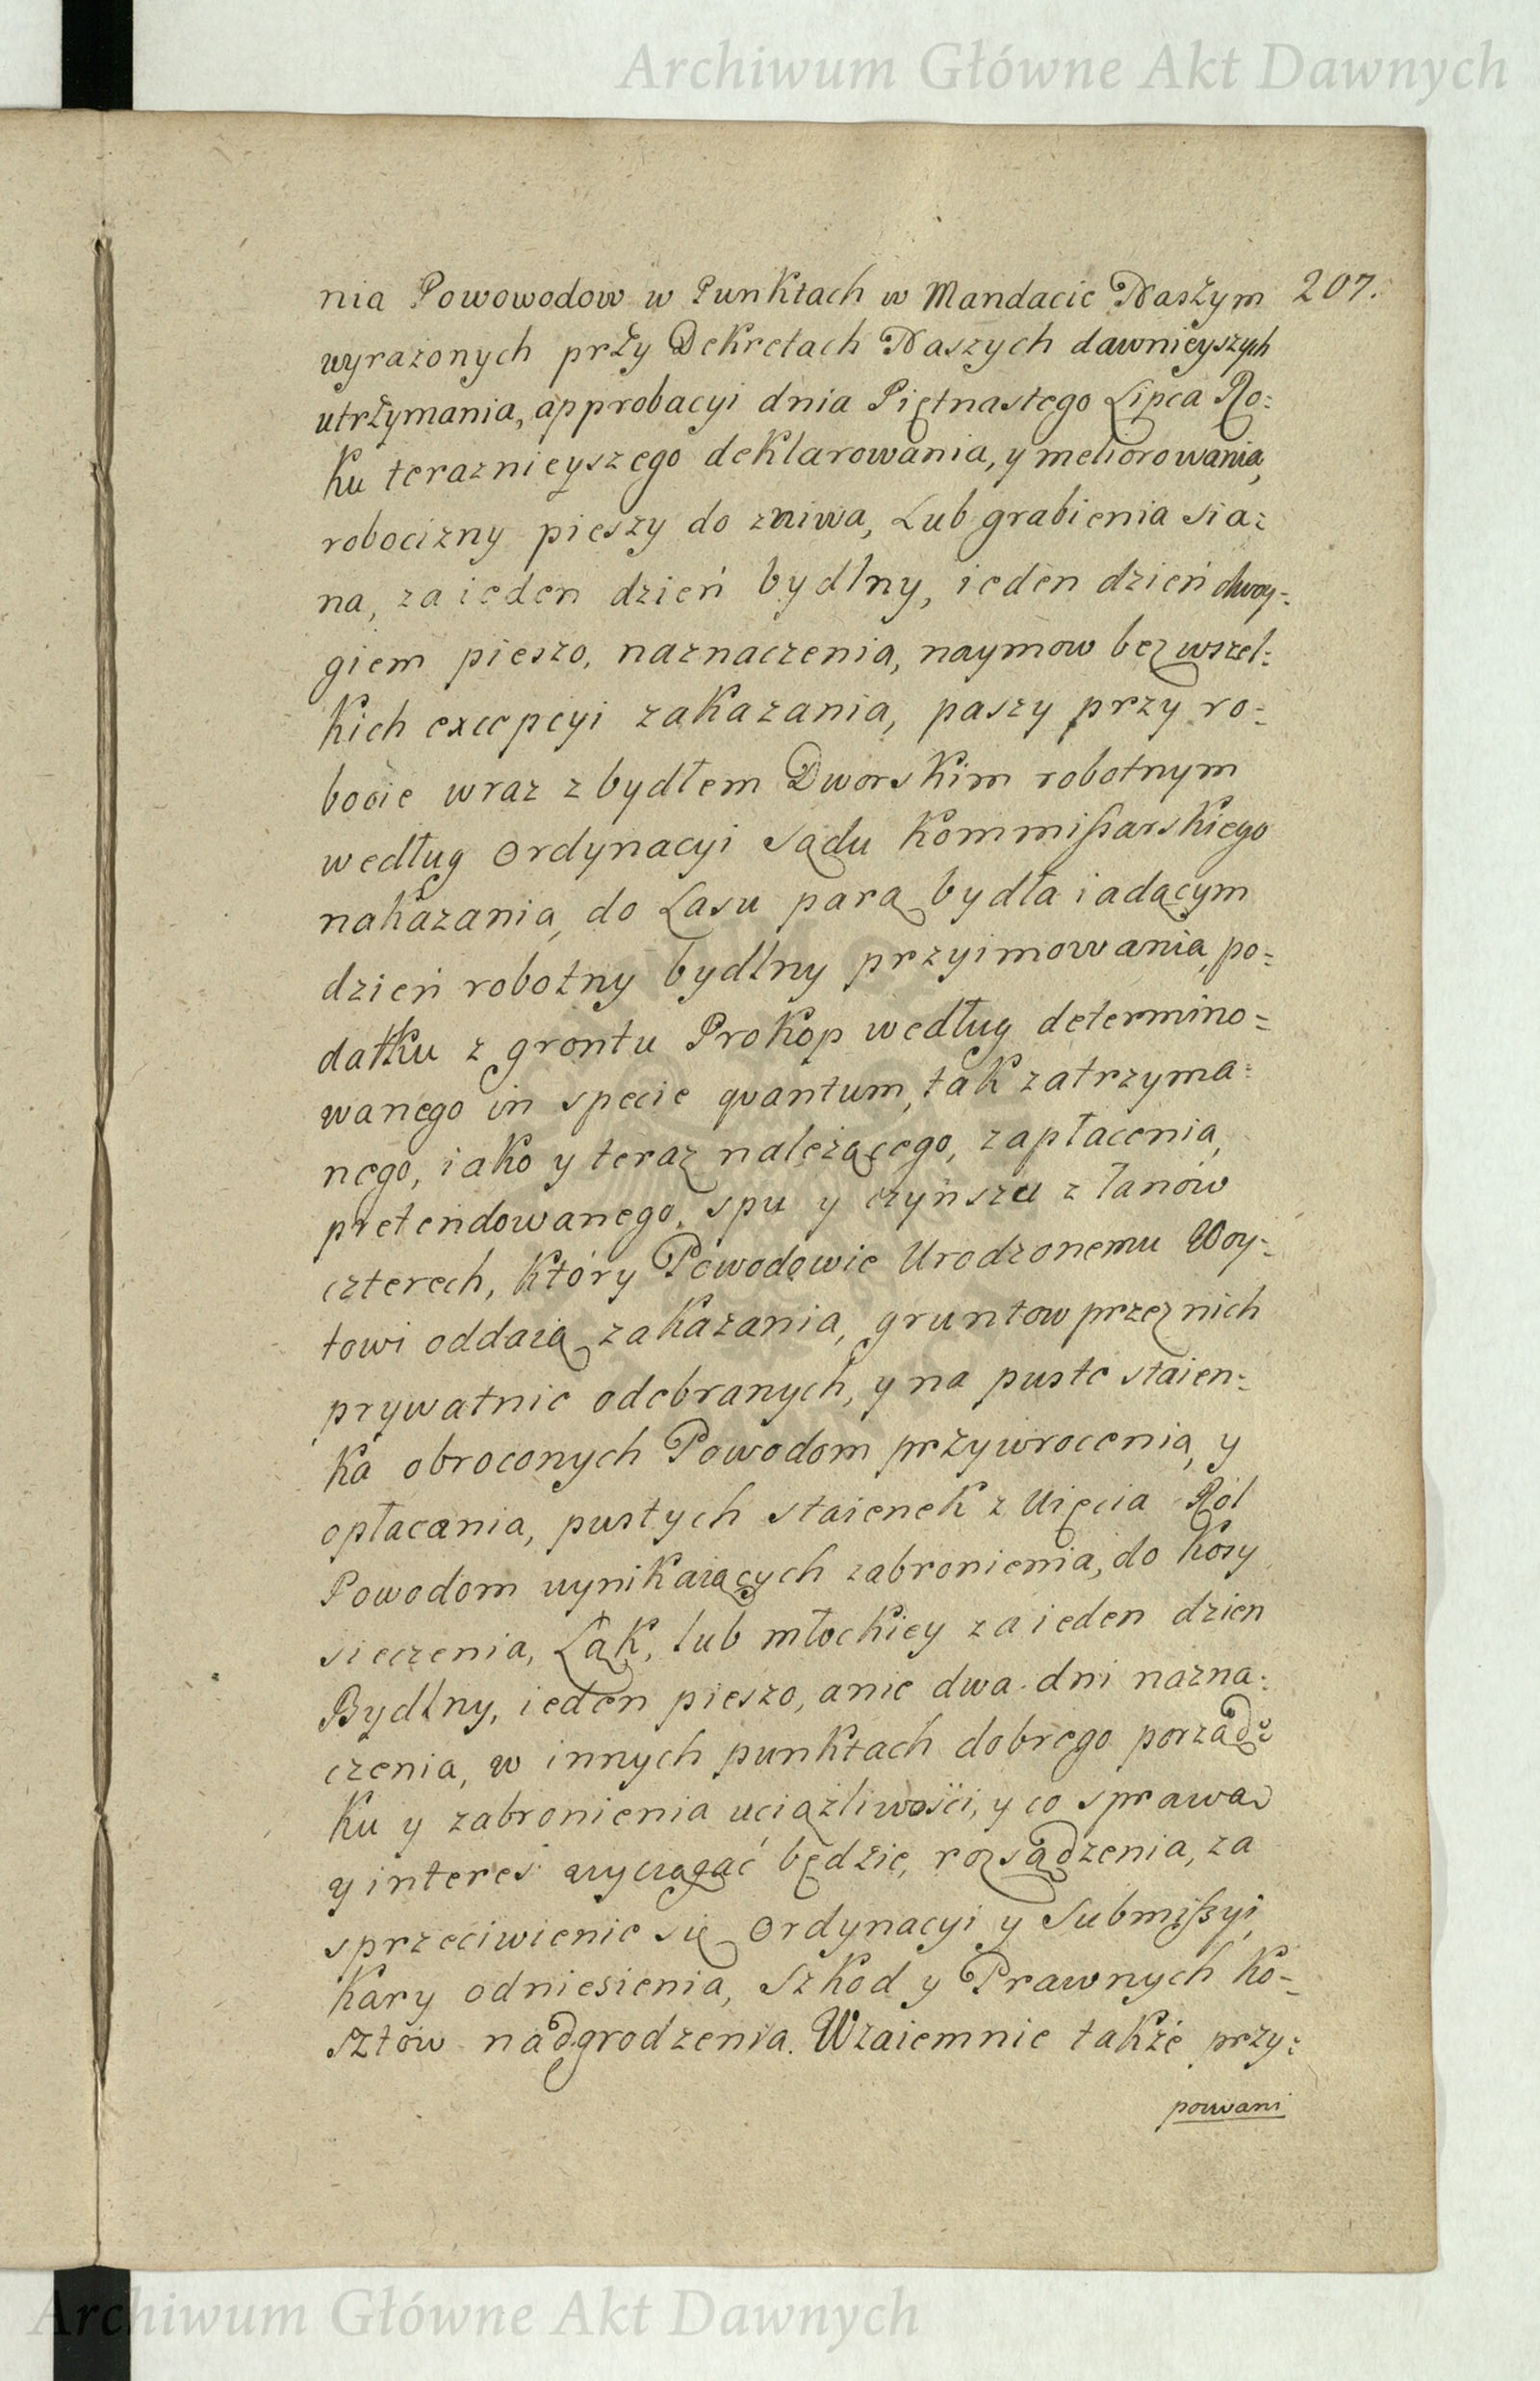 Archiwum Główne Akt Dawnych
207.
nia Powowodow w Punktach w Mandacie Naszym
wyrażonych przy Dekretach Naszych dawnieyszych
utrzymania, approbacyi dnia Piętnastego Lipca Ro=
ku teraznieyszego deklarowania, y meliorowania,
robocizny pieszy do zniwa, Lub grabienia sia=
na, za ieden dzień bydlny, ieden dzień dwoy=
giem pieszo, naznaczenia, naymow bez wszel=
kich excepcyi zakazania, paszy przy ro=
bocie wraz z bydłem Dworskim robotnym
według Ordynacyi Sądu Kommißarskiego
nakazania, do Lasu parą bydła iadącym
dzień robotny bydlny przyimowania, po=
datku z grontu Prokop według determino=
wanego in specie quantum, tak zatrzyma=
nego, iako y teraz należącego, zapłacenia,
pretendowanego, spu y czynszu z łanów
czterech, który Powodowie Urodzonemu Woy=
towi oddaią zakazania, gruntow przez nich
prywatnie odebranych, y na puste staien=
ka obroconych Powodom przywrocenia, y
opłacania, pustych staienek z Uięcia Ról
Powodom wynikaiących zabronienia, do kosy
sieczenia, Łąk, lub młockiey za ieden dzien
Bydlny, ieden pieszo, anie dwa dni nazna=
czenia, w innych punktach dobrego porząd=
ku y zabronienia uciążliwości, y co sprawa
y interes wyciągać będzie, rozsądzenia, za
sprzeciwienie się Ordynacyi y Submißyi,
Kary odniesienia, Szkod y Prawnych Ko=
sztów nadgrodzenia. Wzaiemnie także przy=
pozwani
Archiwum Główne Akt Dawnych